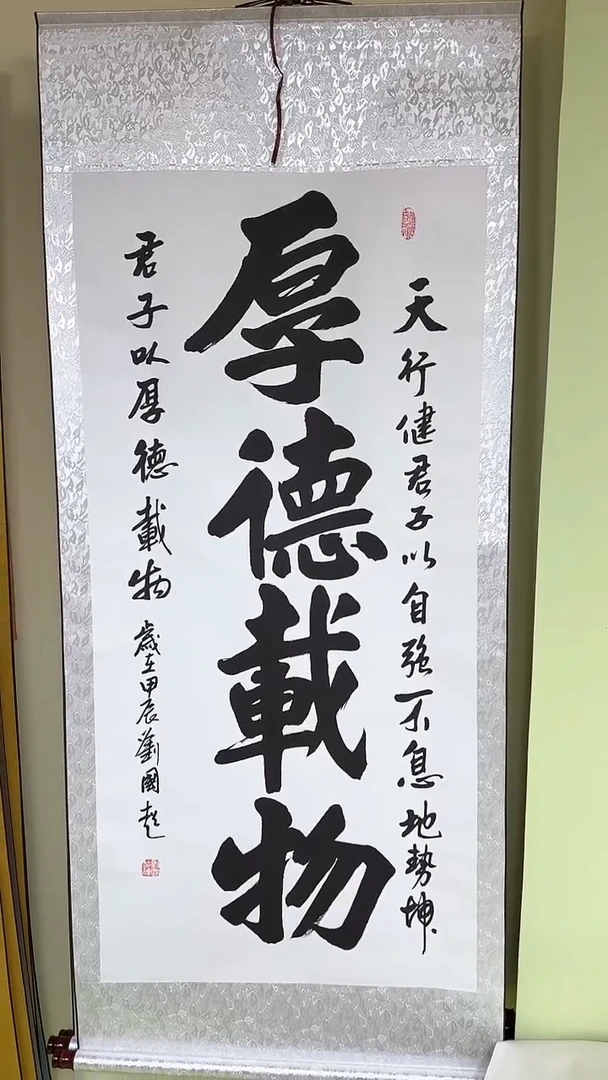 天行健君子以自强不息地勢坤
厚德載物
君子以厚德載物
歲在甲辰劉國超